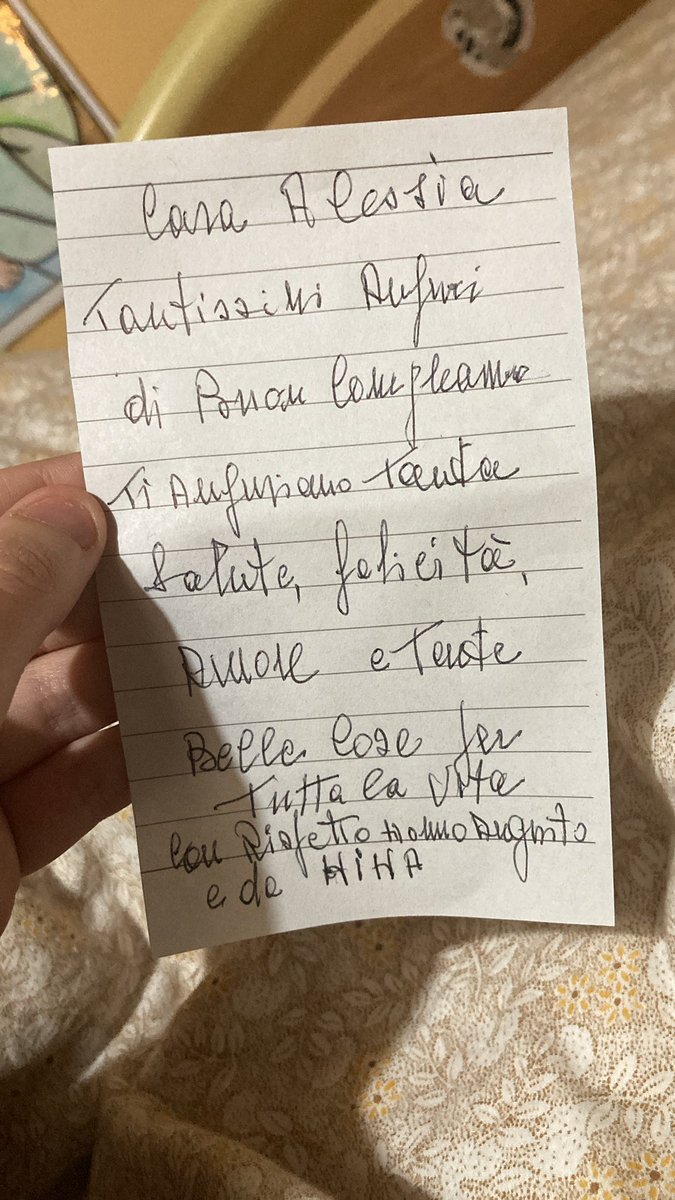 Cara Alessia
Tantissimi Auguri
di Buon Compleanno
Ti Auguriamo tanta
Salute, felicità,
Amore e Tante
Belle Cose per
tutta la vita
Con Rispetto nonno Augusto
e da NINA